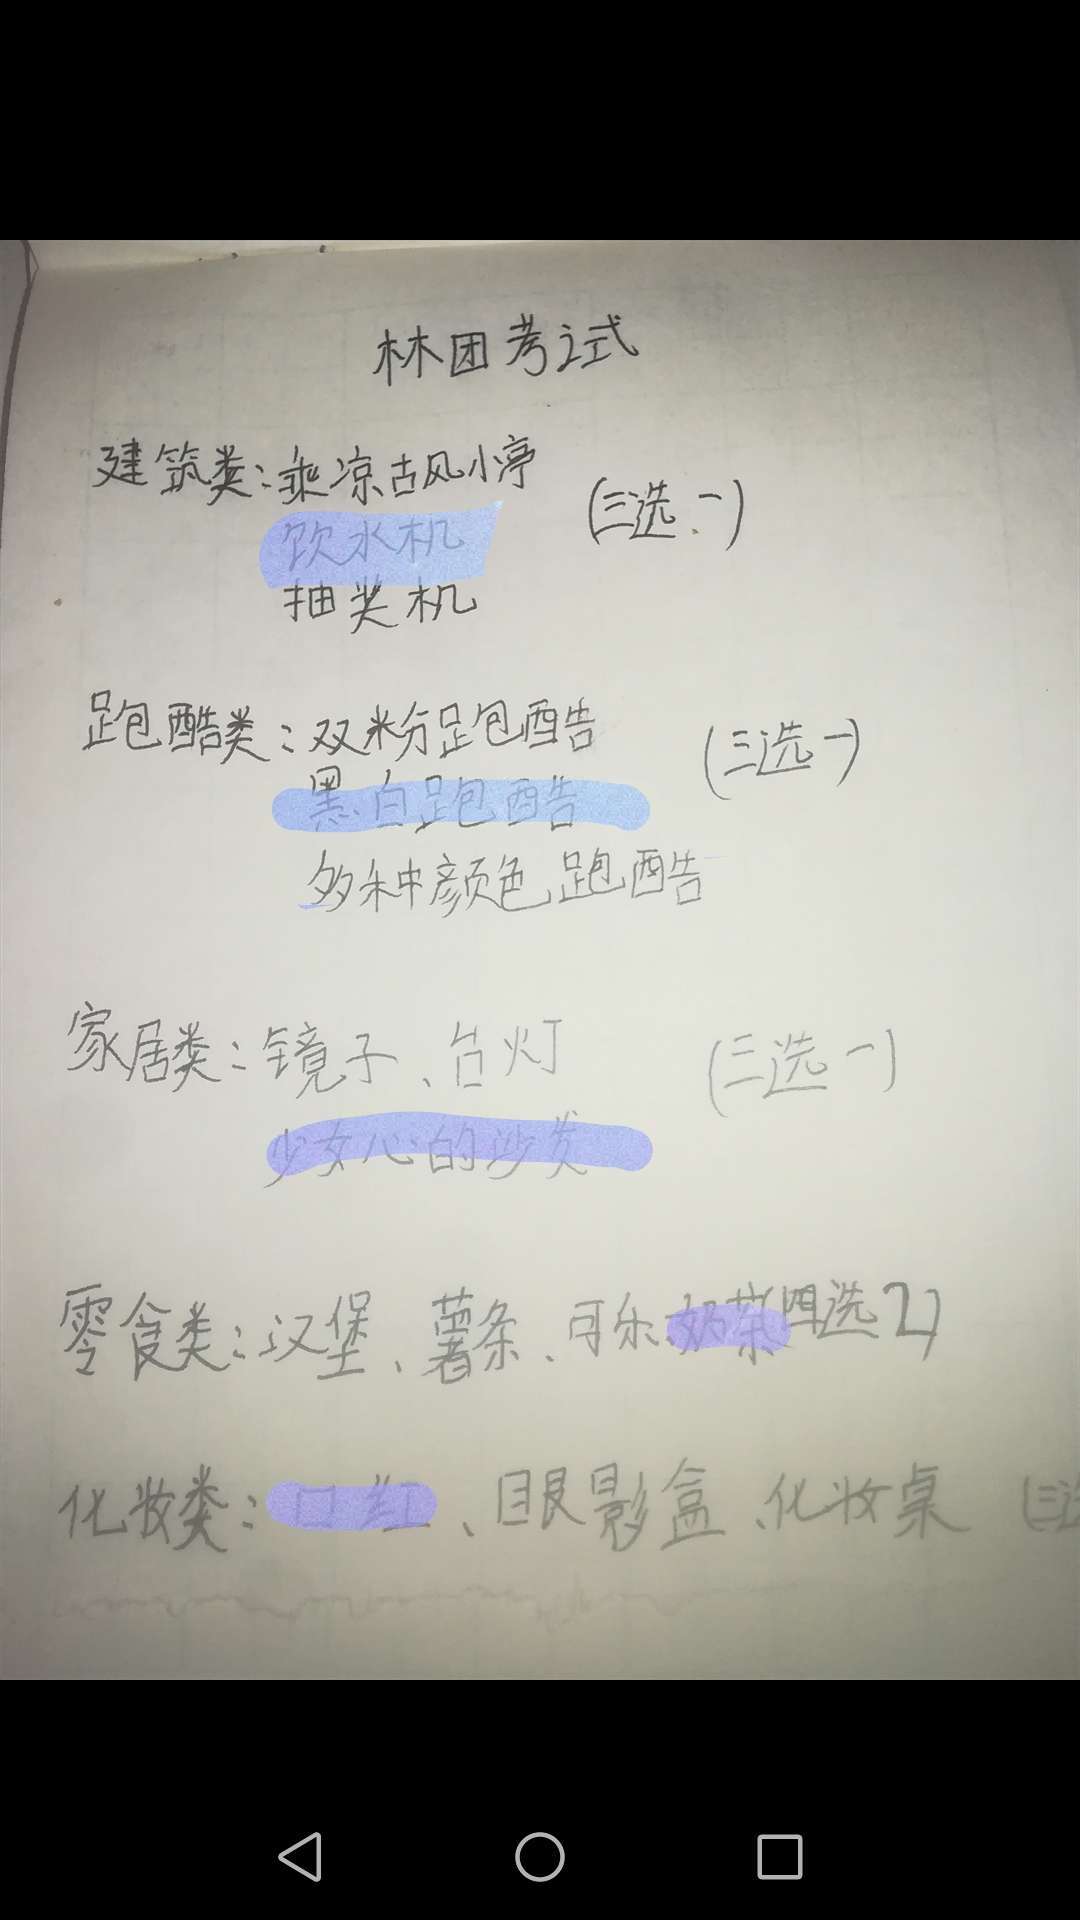 林团考试
建筑类:乘凉古风小亭
(三选一)
饮水机
抽奖机
跑酷类:双粉跑酷
(三选一)
黑白跑酷
多种颜色跑酷
家居类:镜子、台灯 (三选一)
少女心的沙发
零食类:汉堡、薯条、可乐、奶茶(四选2)
化妆类:口红、眼影盒、化妆桌 (三选